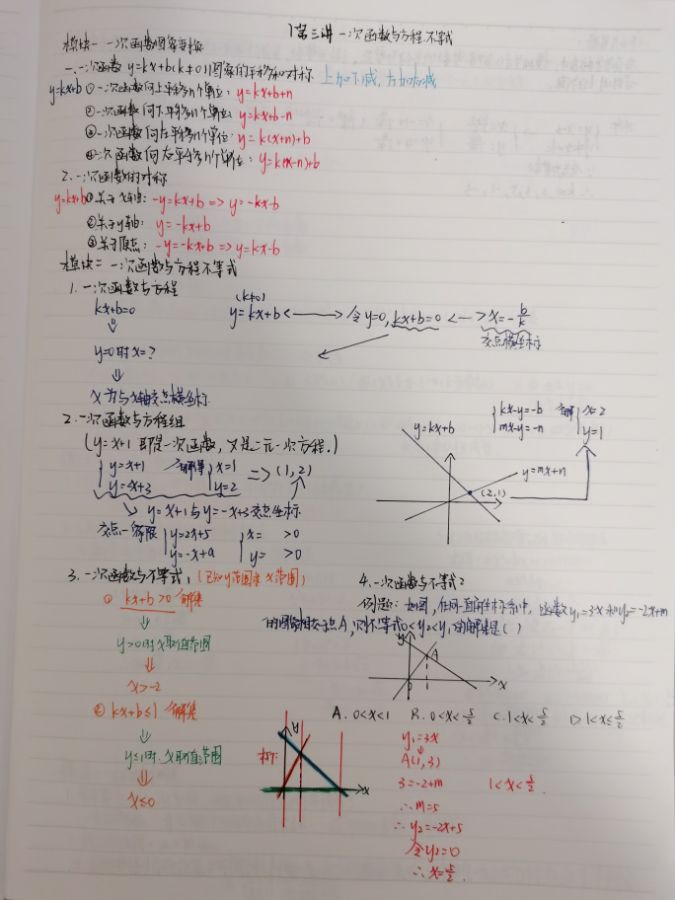 第三讲 一次函数与方程不等式
模块一 一次函数图象变换
一、一次函数 y=kx+b(k≠0)图象的平移和对称 上加下减,左加右减
y=kx+b ①一次函数向上平移n个单位: y=kx+b+n
②一次函数向下平移n个单位: y=kx+b-n
③一次函数向左平移n个单位: y=k(x+n)+b
④一次函数向右平移n个单位: y=k(x-n)+b
2.一次函数的对称
y=kx+b ①关于x轴: -y=kx+b => y=-kx-b
②关于y轴: y=-kx+b
③关于原点: -y=-kx+b => y=kx-b
模块二 一次函数与方程不等式
1.一次函数与方程
kx+b=0
(k≠0)
y=kx+b <—> 令y=0, kx+b=0 <—> x=-b/k
交点横坐标
y=0时x=?
x为与x轴交点横坐标
2.一次函数与方程组
(y=x+1 即是一次函数,又是二元一次方程.)
{y=x+1 解得 {x=1 => (1,2)
y=-x+3 y=2
y=x+1与y=-x+3交点坐标
交点一象限 {y=2x+5 {x= >0
y=-x+a y= >0
y=kx+b
{kx-y=-b {x=2
mx-y=-n y=1
y=mx+n
(2,1)
3.一次函数与不等式:(已知y范围求x范围)
① kx+b>0 解集
y>0时x取值范围
x>-2
② kx+b≤1 解集
y≤1时x取值范围
x≤0
4.一次函数与不等式2
例题:如图,在同一直角坐标系中,函数y₁=3x和y₂=-2x+m
的图象相交于点A,则不等式0<y₂<y₁的解集是( )
y
A
0 1 x
A. 0<x<1 B. 0<x<5/2 C. 1<x<5/2 D 1<x≤5/2
y
x
y₁=3x
A(1,3)
3=-2+m 1<x<5/2.
∴m=5
∴y₂=-2x+5
令y₂=0
∴x=5/2.